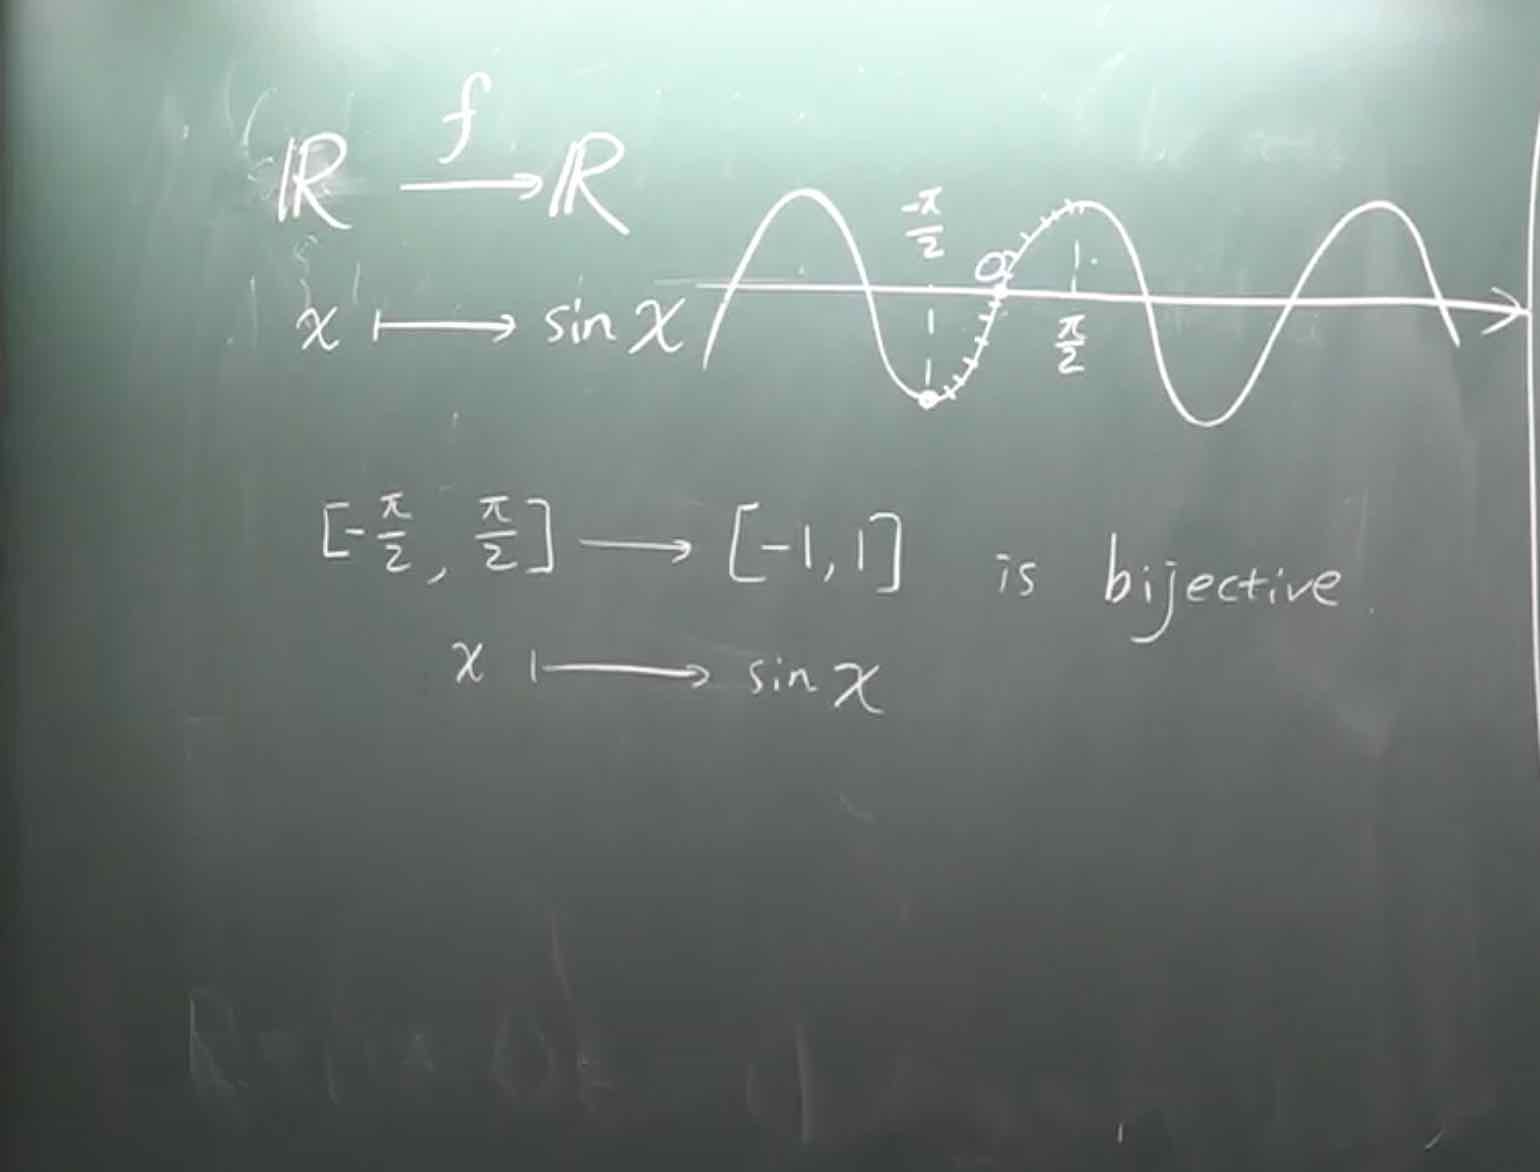 ℝ —f→ ℝ
x ↦ sin x
-π/2
O
π/2
[-π/2, π/2] → [-1, 1] is bijective.
x ↦ sin x